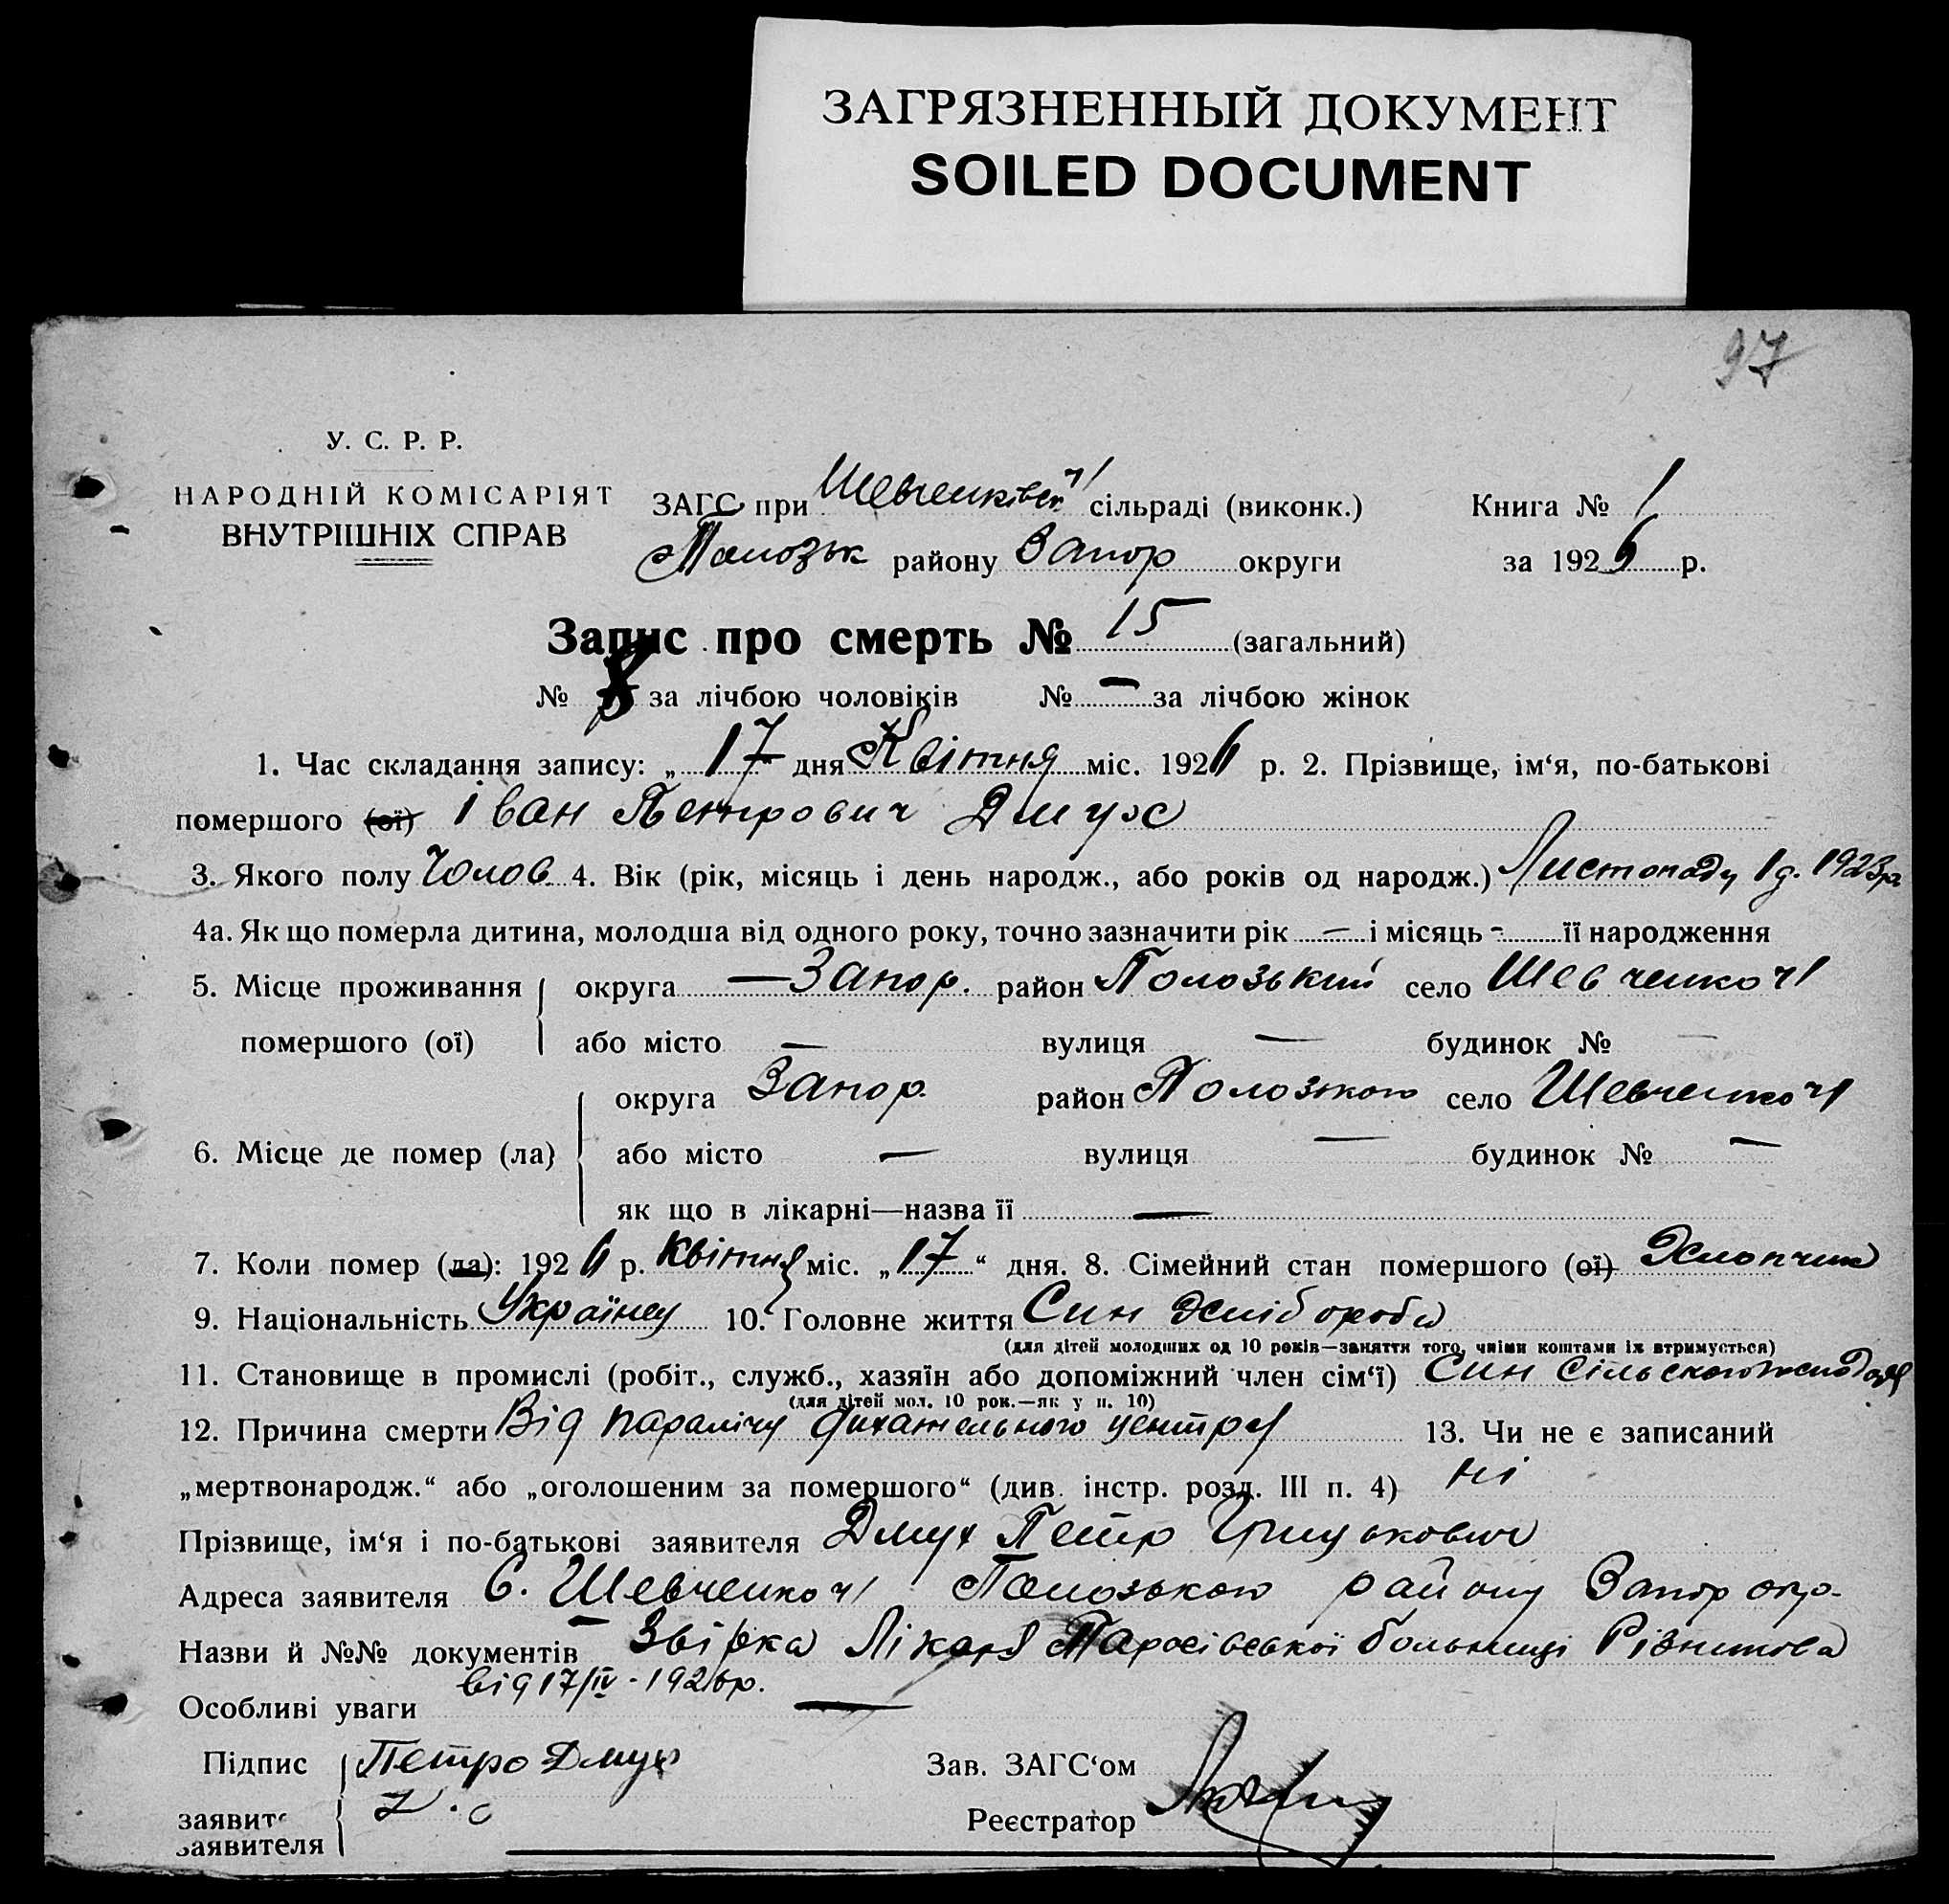 ЗАГРЯЗНЕННЫЙ ДОКУМЕНТ
SOILED DOCUMENT
97
У. С. Р. Р.
НАРОДНІЙ КОМІСАРІЯТ
ВНУТРІШНІХ СПРАВ
ЗАГС при Шевченківск сільраді (виконк.) Книга № 1
Полозьк району Запор округи за 1926 р.
Запис про смерть № 15 (загальний)
№ 8 за лічбою чоловіків № — за лічбою жінок
1. Час складання запису: „ 17 дня Квітня міс. 1926 р. 2. Прізвище, ім‘я, по-батькові
помершого (ої) Іван Петрович Дмух
3. Якого полу Чолов. 4. Вік (рік, місяць і день народж., або років од народж.) Листопаду 1 д. 1923 р.
4а. Як що померла дитина, молодша від одного року, точно зазначити рік — і місяць - її народження
5. Місце проживання округа — Запор. район Полозький село Шевченко ч1
помершого (ої) або місто — вулиця — будинок № —
округа Запор. район Полозького село Шевченко ч1
6. Місце де помер (ла) або місто — вулиця — будинок № —
як що в лікарні—назва її —
7. Коли помер (ла): 1926 р. Квітня міс. „17“ дня. 8. Сімейний стан помершого (ої) Хлопчик
9. Національність Українец 10. Головне життя Син хлібороба
(для дітей молодших од 10 років—заняття того, чиїми коштами їх втримується)
11. Становище в промислі (робіт., служб., хазяїн або допоміжний член сім‘ї) Син сільського
(для дітей мол. 10 рок.—як у п. 10)
12. Причина смерти Від паралічу дихательного центру 13. Чи не є записаний
„мертвонародж.“ або „оголошеним за помершого“ (див. інстр. розд. III п. 4) ні
Прізвище, ім‘я і по-батькові заявителя Дмух Петр Грицькович
Адреса заявителя С. Шевченко ч1 Полозького району Запор окр.
Назви й №№ документів Лікаря больниці
від 17/IV - 1926 р.
Особливі уваги —
Підпис Петро Дмух Зав. ЗАГС‘ом
заявите Реєстратор
заявителя